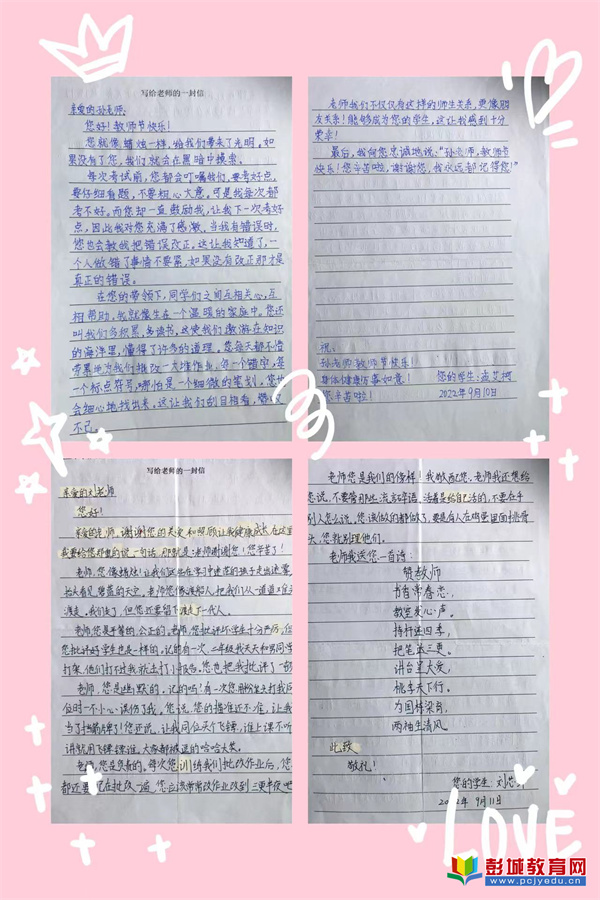 写给老师的一封信
亲爱的孙老师:
您好!教师节快乐!
您就像蜡烛一样,给我们带来了光明。如
果没有了您,我们就会在黑暗中摸索。
每次考试前,您都会叮嘱我们,要考好点,
要仔细看题,不要粗心大意。可是我每次都
考不好。而您却一直鼓励我,让我下一次考好
点,因此我对您充满了感激。当我有错误时,
您也会教我把错误改正。这让我知道了,一
个人做错了事情不要紧,如果没有改正那才是
真正的错误。
在您的带领下,同学们之间互相关心,互
相帮助,我就像生在一个温暖的家庭中。您还
叫我们多积累,多读书,这使我们遨游在知识
的海洋里,懂得了许多的道理。您每天都不怕
劳累地为我们批改一大堆作业,每一个错字,每
一个标点符号,哪怕是一个细微的笔划,您也
会细心地找出来,这让我们刮目相看,赞叹
不已。
老师我们不仅仅有这样的师生关系,更像朋
友关系!能够成为您的学生,这让我感到十分
荣幸!
最后,我向您忠诚地说:“孙老师,教师节
快乐!您辛苦啦,谢谢您,我永远都记得您!”
祝:
孙老师教师节快乐!
身体健康万事如意! 您的学生:孟艾珂
您辛苦啦! 2022年9月10日
写给老师的一封信
亲爱的刘老师
您好!
亲爱的老师,谢谢您的关爱和照顾让我健康成长在这里
我要给您郑重的说一句话,那就是:老师谢谢您!您辛苦了!
老师,您像蜡烛!让我们这些在学习中迷茫的孩子走出迷雾,
抬头看见蔚蓝的天空。老师您像渡船人,把我们从一道道难关
渡走。我们走了,但您还要留下渡走下一代人。
老师您是平等的,公正的。老师,您批评坏学生十分严厉,但
您批评好学生也是一样的。记的有一次,二年级我天天和男同学
打架,他们打不过我就去打小报告。您也把我批评了一顿
老师,您是幽默的。记的吗?有一次您用粉笔头打我同
位时一不小心误伤了我。您说,您的瞄准还不准,让我
当了挡箭牌了!您还说,让我同位买个飞镖,谁上课不听
讲就用飞镖镖谁。大家都被逗的哈哈大笑。
老师,您是负责的。每次您训练我们批改作业后,您
都还要自己在批改一遍,您应该常常改作业改到三更半夜吧
老师您是我们的榜样!我敬佩您。老师我还想给
您说,不要管那些流言碎语,活着是给自己活的,不要在乎
别人怎么说,您该做的都做了,要是有人在鸡蛋里面挑骨
头,您就别理他们。
老师我送您一首诗:
赞教师
书香常春恋,
教室爱心声。
持杆送四季,
把笔至三更。
讲台呈大爱,
桃李天下行。
为国精梁贡,
两袖生清风。
此致
敬礼!
您的学生:刘芯
2022年9月11日
LOVE
彭城教育网
www.pcjyedu.cn